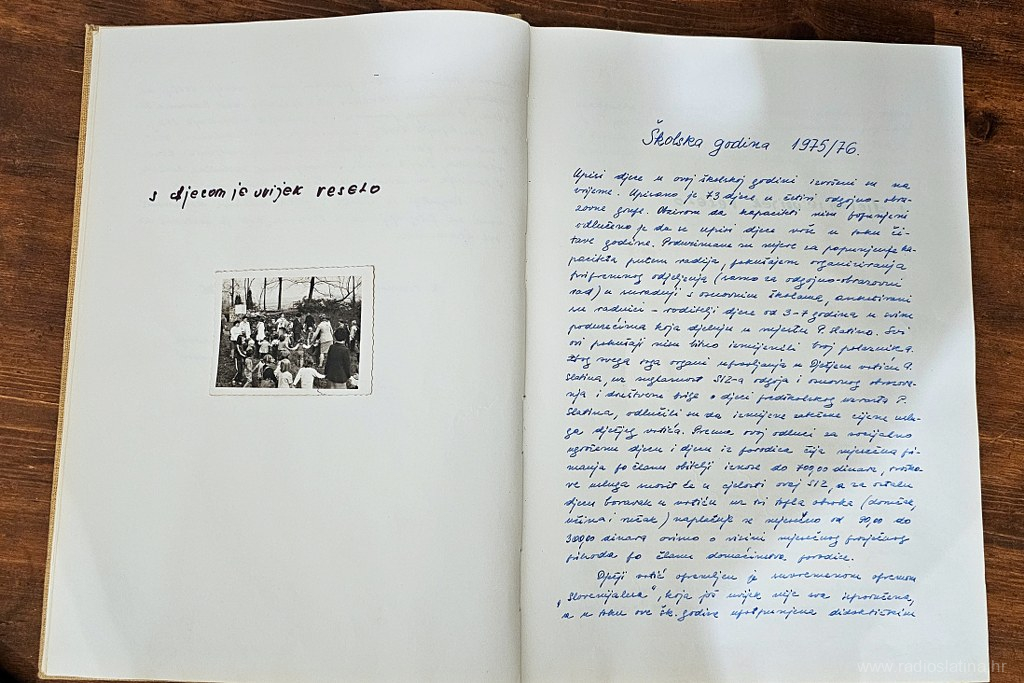 s djecom je uvijek veselo
Školska godina 1975/76.
Upisi djece u ovoj školskoj godini izvršeni su na
vrijeme. Upisano je 73 djece u četiri odgojno-obra-
zovne grupe. Obzirom da kapaciteti nisu popunjeni
odlučeno je da se upisi djece vrše u toku či-
tave godine. Poduzimane su mjere za popunjenje ka-
paciteta putem radija, pokušajem organiziranja
dvaput odjeljenja (samo za odgojno-obrazovni
rad) u suradnji s osnovnim školama, anketirani
su radnici - roditelji djece od 3-7 godina u svim
poduzećima koja djeluju u mjestu P. Slatina. Svi
ovi pokušaji nisu bitno izmijenili broj polaznika.
Zbog svega toga organi upravljanja u Dječjem vrtiću P.
Slatina, uz suglasnost SIZ-a odgoja i osnovnog obrazova-
nja i društvene brige o djeci predškolskog uzrasta P.
Slatina, odlučili su da izmijene cijene uslu-
ga dječjeg vrtića. Prema ovoj odluci za socijalno
ugroženu djecu i djecu iz porodica čija mjesečna pri-
manja po članu obitelji iznose do 700,00 dinara, troško-
ve usluga snosit će u cijelosti ovaj SIZ, a za ostalu
djecu boravak u vrtiću uz tri topla obroka (doručak,
užina i ručak) naplaćuje se mjesečno od 90,00 do
300,00 dinara ovisno o visini mjesečnog prosječnog
prihoda po članu domaćinstva porodice.
Dječji vrtić opremljen je suvremenom opremom
"Slovenijales", koja još uvijek nije sva isporučena,
a u toku ove šk. godine upotpunjena didaktičkim
www.radioslatina.hr